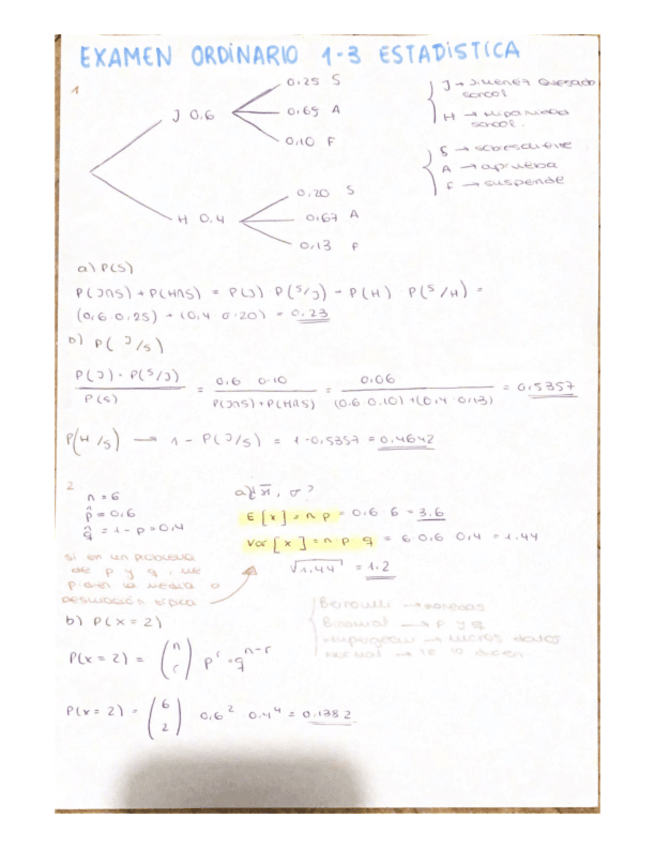 EXAMEN ORDINARIO 1-3 ESTADÍSTICA
1
J 0.6
0.25 S
0.65 A
0.10 F
H 0.4
0.20 S
0.67 A
0.13 F
J → Jimenez Quesada
H →
S → sobresaliente
A → aprueba
F → suspende
a) P(S)
P(J∩S) + P(H∩S) = P(J) · P(S/J) + P(H) · P(S/H) =
(0.6 · 0.25) + (0.4 · 0.20) = 0.23
b) P(J/S)
P(J) · P(S/J) / P(S) = 0.6 · 0.10 / P(J∩S) + P(H∩S) = 0.06 / (0.6 · 0.10) + (0.4 · 0.13) = 0.5357
P(H/S) → 1 - P(J/S) = 1 - 0.5357 = 0.4642
2
n = 6
p̂ = 0.6
q̂ = 1 - p = 0.4
a) ¿x̄, σ?
E[x] = n · p = 0.6 · 6 = 3.6
Var[x] = n · p · q = 6 · 0.6 · 0.4 = 1.44
√1.44 = 1.2
si en un problema
de p y q, me
piden la media o
desviación típica
Bernoulli → monedas
Binomial → p y q
→ menos datos
Normal → te lo dicen
b) P(x = 2)
P(x = 2) = (n r) p^r · q^n-r
P(x = 2) = (6 2) 0.6^2 · 0.4^4 = 0.1382